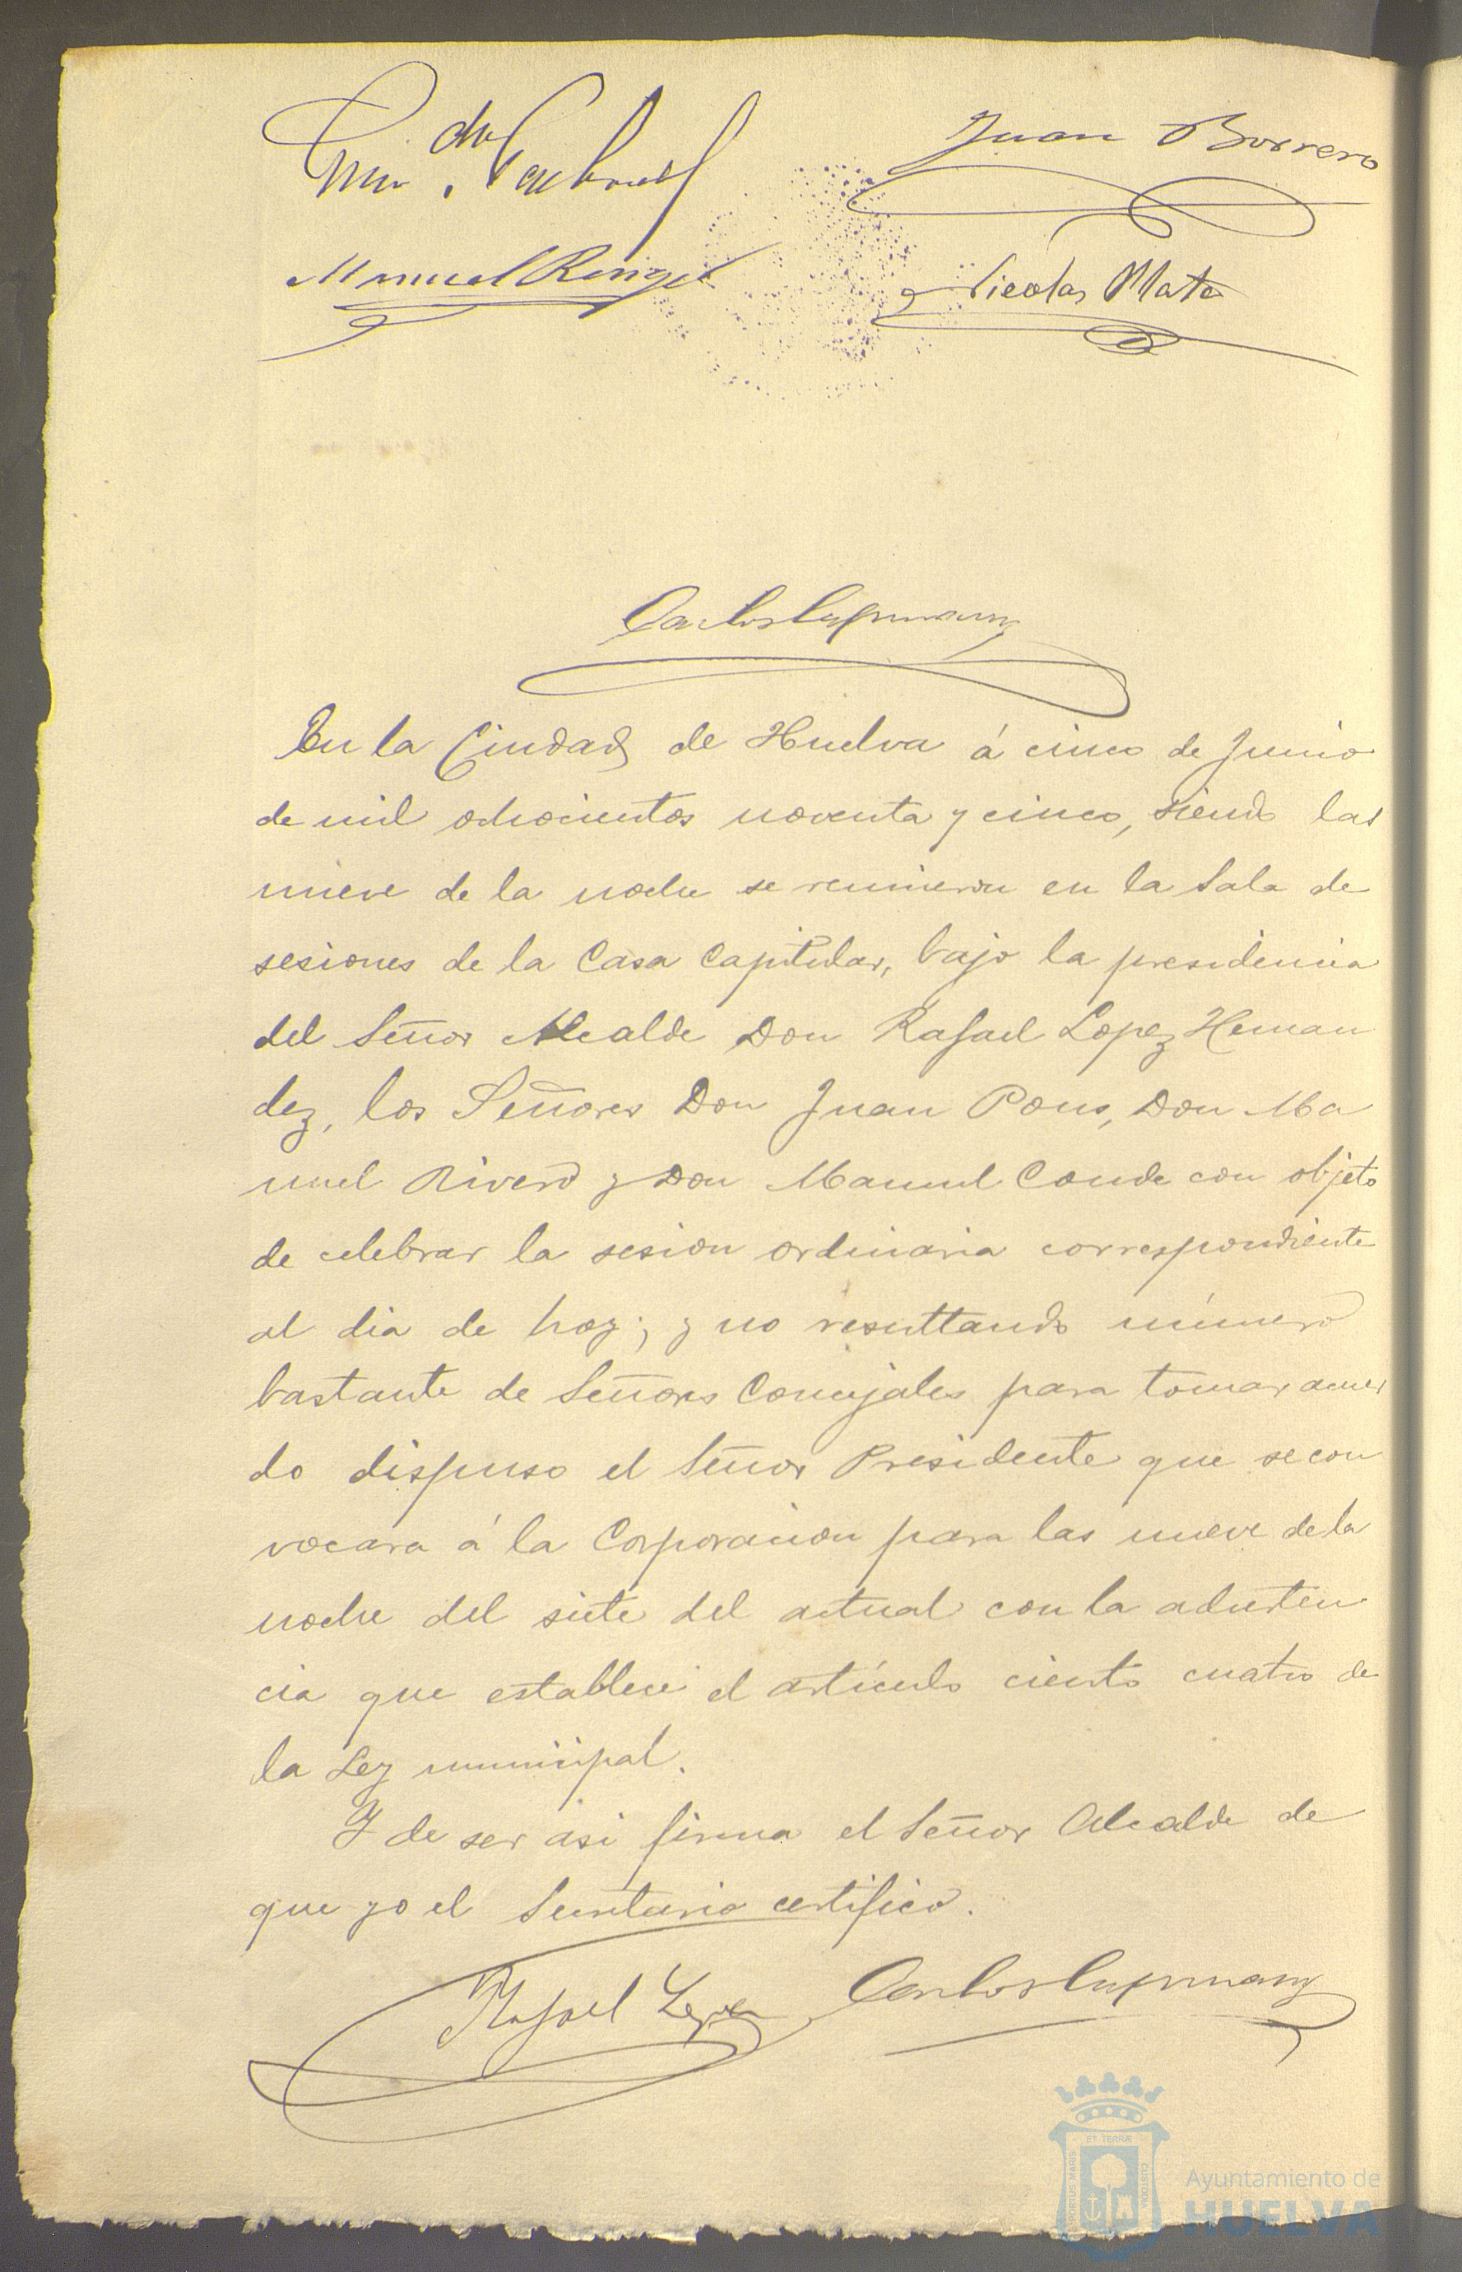 Juan Borrero
Manuel Rengel
Nicolas Mata
En la Ciudad de Huelva á cinco de Junio
de mil ochocientos noventa y cinco, siendo las
nueve de la noche se reunieron en la Sala de
sesiones de la Casa Capitular, bajo la presidencia
del Señor Alcalde Don Rafael Lopez Hernan
dez, los Señores Don Juan Pons, Don Ma
nuel Rivero y Don Manuel Conde con objeto
de celebrar la sesion ordinaria correspondiente
al dia de hoy; y no resultando número
bastante de Señores Concejales para tomar acuer
do dispuso el Señor Presidente que se con
vocara á la Corporacion para las nueve de la
noche del siete del actual con la adverten
cia que establece el artículo ciento cuatro de
la Ley municipal.
Y de ser asi firma el Señor Alcalde de
que yo el Secretario certifico.
Rafael Lopez
Ayuntamiento de
HUELVA